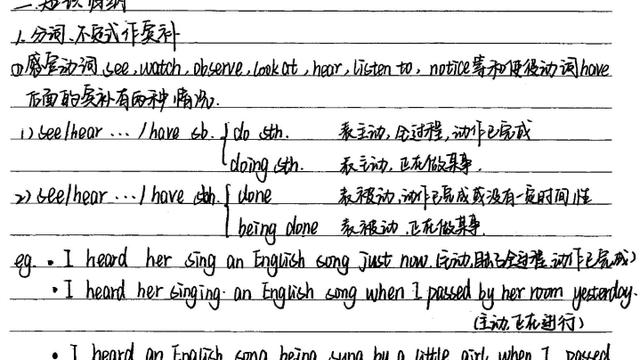 二. 知识归纳
1. 分词、不定式作宾补
①感官动词 see, watch, observe, look at, hear, listen to, notice等和使役动词have
后面的宾补有两种情况.
1) see/hear ... / have sb. { do sth. 表主动, 全过程, 动作已完成
doing sth. 表主动, 正在做某事.
2) see/hear ... / have sth. { done 表被动, 动作已完成或没有一定时间性
being done 表被动, 正在做某事.
eg. • I heard her sing an English song just now. (主动, 全过程, 动作已完成)
• I heard her singing an English song when I passed by her room yesterday.
(主动, 正在进行)
• I heard an English song being sung by a little girl when I passed